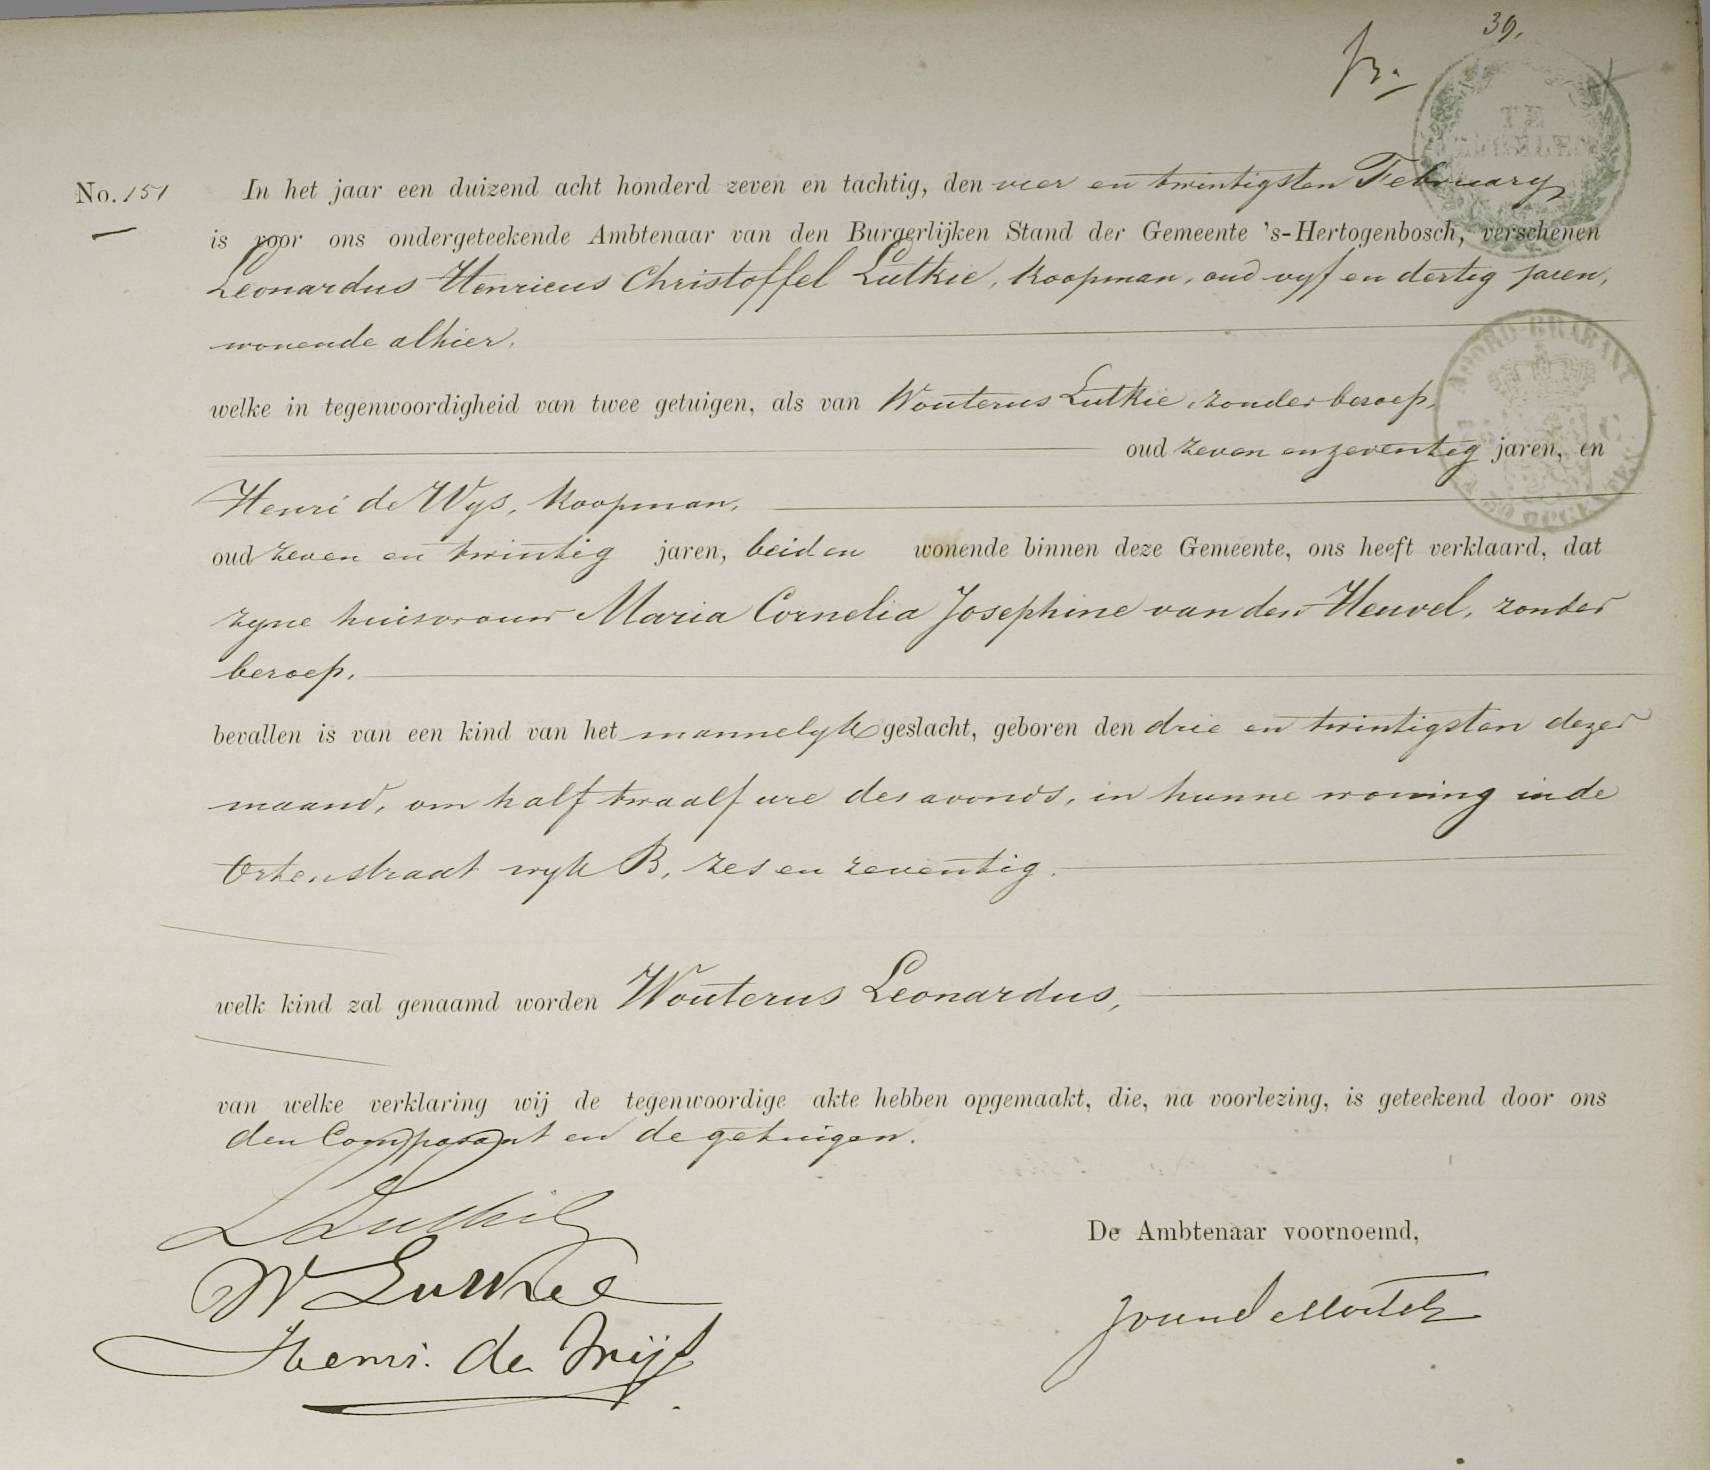 39.
No. 151 In het jaar een duizend acht honderd zeven en tachtig, den vier en twintigsten February
is voor ons ondergeteekende Ambtenaar van den Burgerlijken Stand der Gemeente 's-Hertogenbosch, verschenen
Leonardus Henricus Christoffel Lutkie, Koopman, oud vyf en dertig jaren,
wonende alhier,
welke in tegenwoordigheid van twee getuigen, als van Wouterus Lutkie, zonder beroep,
oud zeven en zeventig jaren, en
Henri de Wys, Koopman,
oud zeven en twintig jaren, beiden wonende binnen deze Gemeente, ons heeft verklaard, dat
zyne huisvrouw Maria Cornelia Josephine van den Heuvel, zonder
beroep,
bevallen is van een kind van het mannelyk geslacht, geboren den drie en twintigsten dezer
maand, om half twaalf ure des avonds, in hunne woning in de
Orthenstraat wyk B, zes en zeventig.
welk kind zal genaamd worden Wouterus Leonardus,
van welke verklaring wij de tegenwoordige akte hebben opgemaakt, die, na voorlezing, is geteekend door ons
den Comparant en de getuigen.
L Lutkie
De Ambtenaar voornoemd,
W Lutkie
Henri de Wijs
NOORD-BRABANT